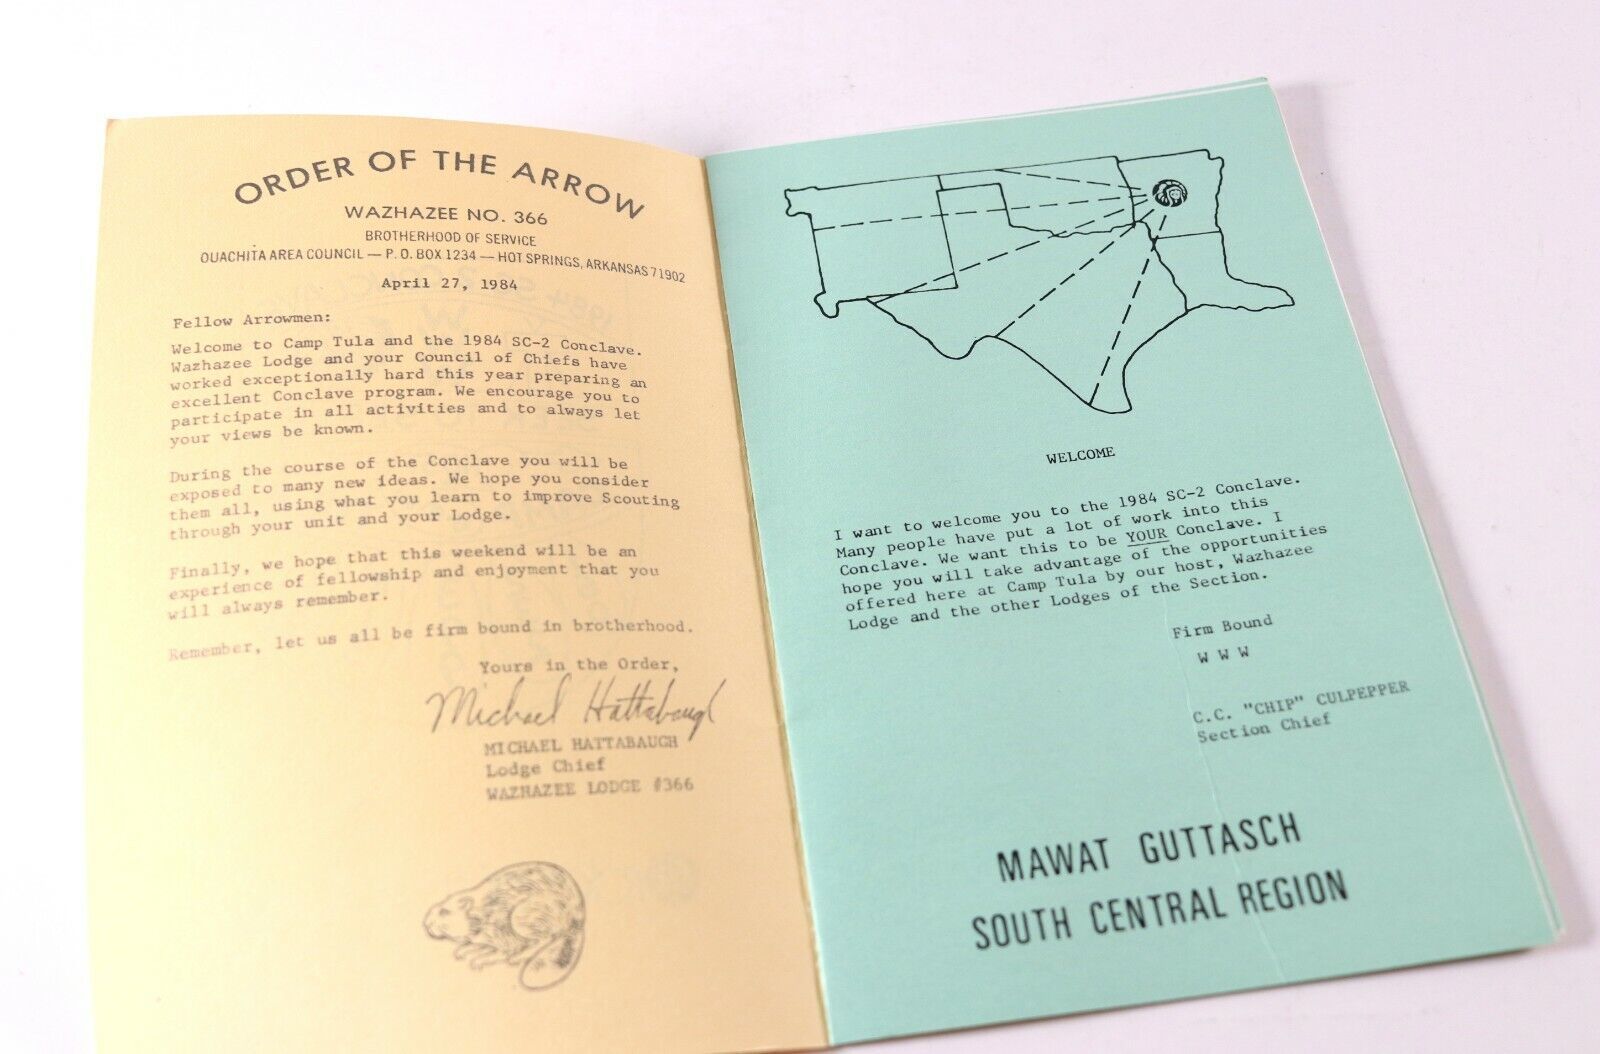 ORDER OF THE ARROW
WAZHAZEE NO. 366
BROTHERHOOD OF SERVICE
OUACHITA AREA COUNCIL — P. O. BOX 1234 — HOT SPRINGS, ARKANSAS 71902
April 27, 1984
Fellow Arrowmen:
Welcome to Camp Tula and the 1984 SC-2 Conclave.
Wazhazee Lodge and your Council of Chiefs have
worked exceptionally hard this year preparing an
excellent Conclave program. We encourage you to
participate in all activities and to always let
your views be known.
During the course of the Conclave you will be
exposed to many new ideas. We hope you consider
them all, using what you learn to improve Scouting
through your unit and your Lodge.
Finally, we hope that this weekend will be an
experience of fellowship and enjoyment that you
will always remember.
Remember, let us all be firm bound in brotherhood.
Yours in the Order,
Michael Hattabaugh
MICHAEL HATTABAUGH
Lodge Chief
WAZHAZEE LODGE #366
WELCOME
I want to welcome you to the 1984 SC-2 Conclave.
Many people have put a lot of work into this
Conclave. We want this to be YOUR Conclave. I
hope you will take advantage of the opportunities
offered here at Camp Tula by our host, Wazhazee
Lodge and the other Lodges of the Section.
Firm Bound
W W W
C.C. "CHIP" CULPEPPER
Section Chief
MAWAT GUTTASCH
SOUTH CENTRAL REGION